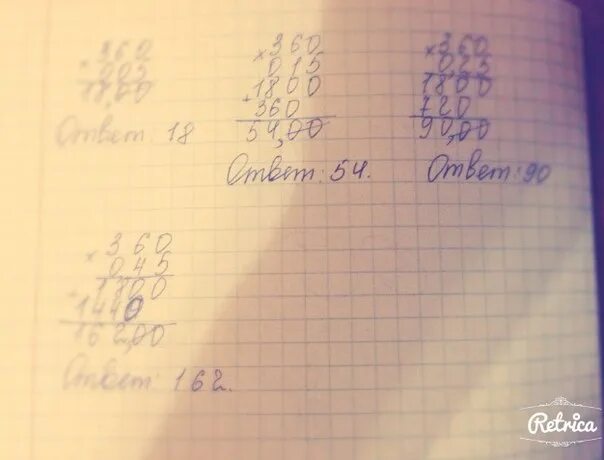 × 360
005
18,00
Ответ: 18
× 360
015
1800
+ 360
54,00
Ответ: 54.
× 360
025
1800
720
90,00
Ответ: 90
× 360
045
1800
1440
162,00
Ответ: 162.
Retrica